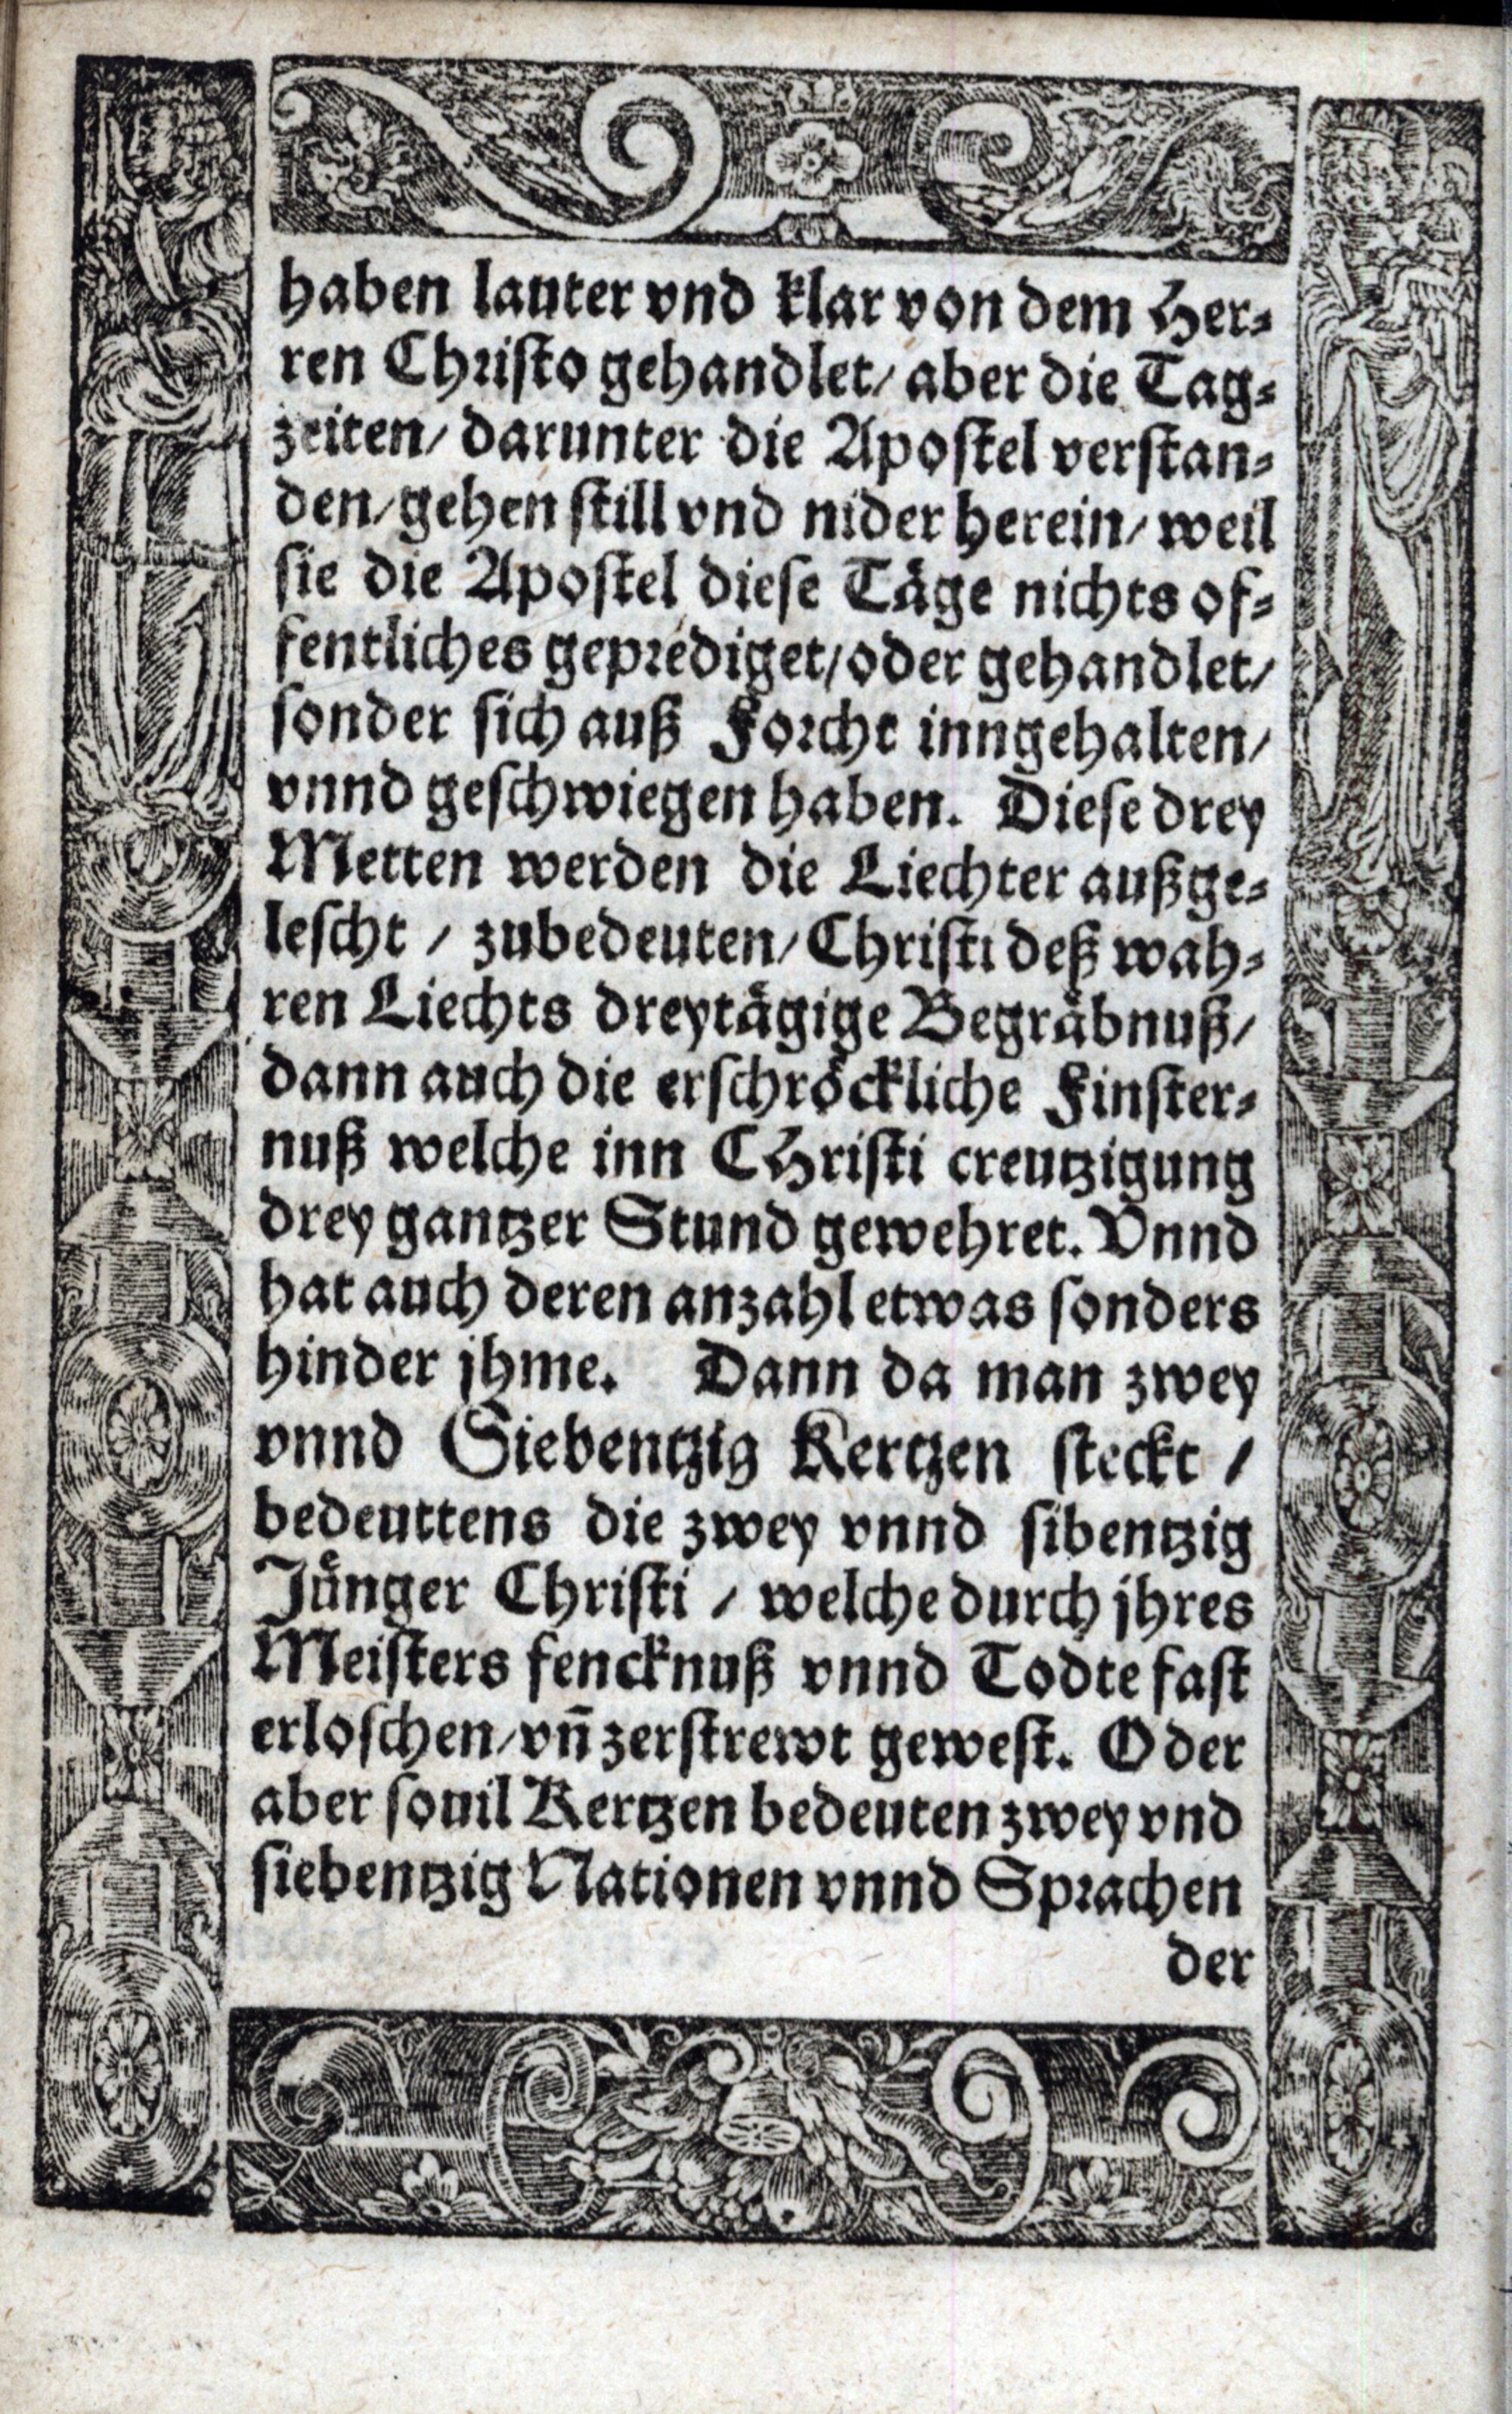 haben lauter vnd klar von dem Her⸗
ren Christo gehandlet/ aber die Tag⸗
zeiten/ darunter die Apostel verstan⸗
den/ gehen still vnd nider herein/ weil
sie die Apostel diese Täge nichts of⸗
fentliches geprediget/ oder gehandlet/
sonder sich auß Forcht inngehalten/
vnnd geschwiegen haben. Diese drey
Metten werden die Liechter außge⸗
lescht / zubedeuten/ Christi deß wah⸗
ren Liechts dreytägige Begräbnuß/
dann auch die erschröckliche Finster⸗
nuß welche inn CHristi creutzigung
drey gantzer Stund gewehret. Vnnd
hat auch deren anzahl etwas sonders
hinder jhme. Dann da man zwey
vnnd Siebentzig Kertzen steckt /
bedeuttens die zwey vnnd sibentzig
Jünger Christi / welche durch jhres
Meisters fencknuß vnnd Todte fast
erloschen/ vn̄ zerstrewt gewest. Oder
aber souil Kertzen bedeuten zwey vnd
siebentzig Nationen vnnd Sprachen
der